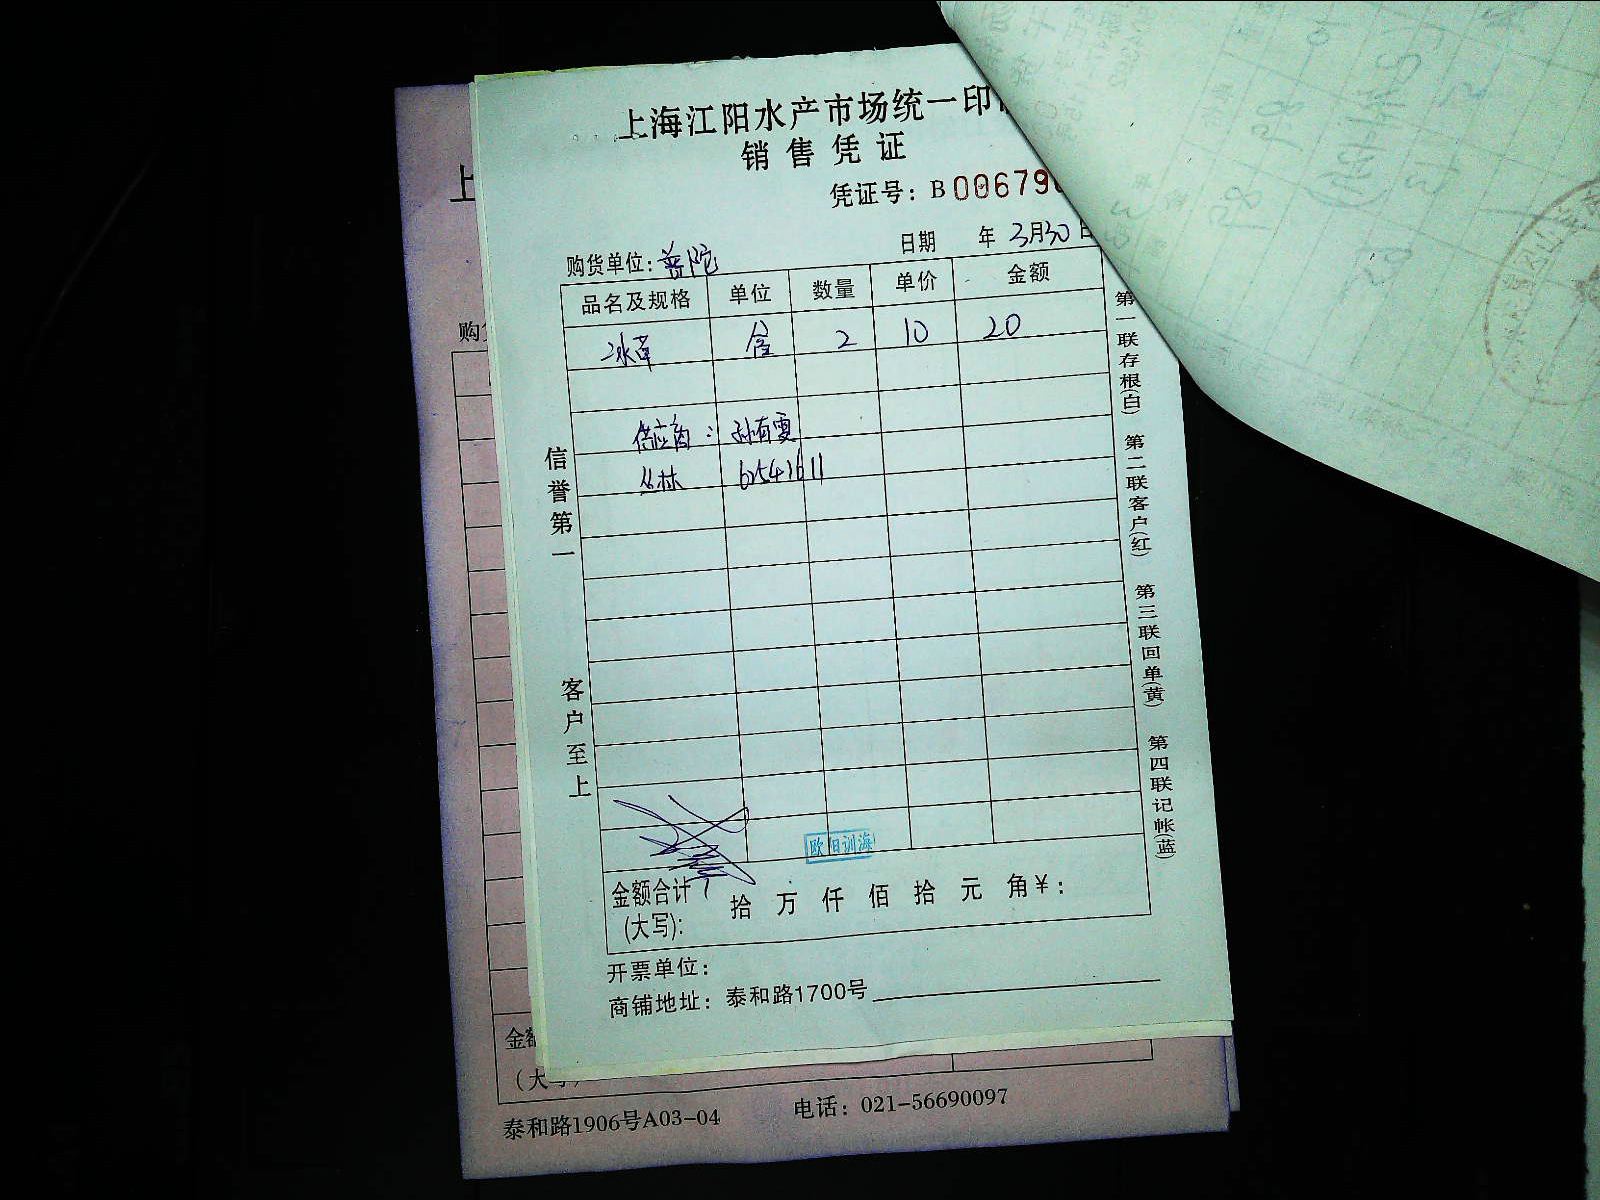 上海江阳水产市场统一印
销售凭证
凭证号：B 00679
购货单位：普陀 日期 年 3月30日
品名及规格 单位 数量 单价 金额
冰草 盒 2 10 20
供应商：孙有雯
丛林 62541611
信誉第一
客户至上
第一联存根(白) 第二联客户(红) 第三联回单(黄) 第四联记帐(蓝)
欧阳训海
金额合计 拾 万 仟 佰 拾 元 角 ¥：
(大写)：
开票单位：
商铺地址：泰和路1700号
上
购
金额
（大写）
泰和路1906号A03-04 电话：021-56690097